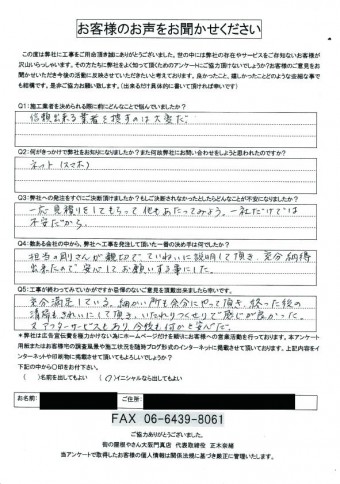 お客様のお声をお聞かせください
この度は弊社に工事をご用命頂き誠にありがとうございました。世の中には弊社の存在やサービスをご存知ないお客様が
沢山いらっしゃいます。その方たちに弊社をよく知って頂くためのアンケートにご協力頂けないでしょうか?お客様のご意見をお
聞かせいただき今後の活動に反映させていただきたいと考えております。良かったこと、嬉しかったことどのような些細な事で
も結構です。是非ご協力お願い致します。(出来るだけ具体的に書いて頂ければ幸いです)
Q1:施工業者を決められる際に何にどんなことで悩んでいましたか?
信頼出来る業者を探すのは大変だ
Q2:何がきっかけで弊社をお知りになりましたか?また何故弊社にお問い合わせをしようと思われたのですか?
ネット(スマホ)
Q3:弊社への発注をすぐにご決断頂けましたか?もしご決断されなかったとしたらどんなことが不安になりましたか?
一応見積りをしてもらって他もあたってみよう。一社だけでは
不安だから。
Q4:数ある会社の中から、弊社へ工事を発注して頂いた一番の決め手は何でしたか?
担当の剛さんが親切で、ていねいに説明して頂き、充分納得
出来たので安心してお願いする事にした。
Q5:工事が終わってみていかがですか忌憚のないご意見を頂戴出来ましたら幸いです。
充分満足している。細かい所も充分にやって頂き、終った後の
清掃もきれいにして頂き、いたれりつくせりで感じが良かった。
アフターサービスもあり、今後も何かと安心だ。
*弊社は広告宣伝費を極力かけない為にホームページだけを頼りにお客様への営業活動を行っております。本アンケート
用紙またはお客様宅の調査風景や施工状況を随時ブログ形式のインターネットに掲載させて頂いております。上記内容をイ
ンターネットや印刷物に掲載させて頂いてもよろしいでしょうか?
下記の中から〇印をお付下さい。
( )名前を出してもよい (〇)イニシャルなら出してもよい
お名前:
FAX 06-6439-8061
ご協力ありがとうございました。
街の屋根やさん大阪門真店 代表取締役 正木奈緒
当アンケートで得られたお客様の個人情報は関係法規に基づき厳正に管理いたします。